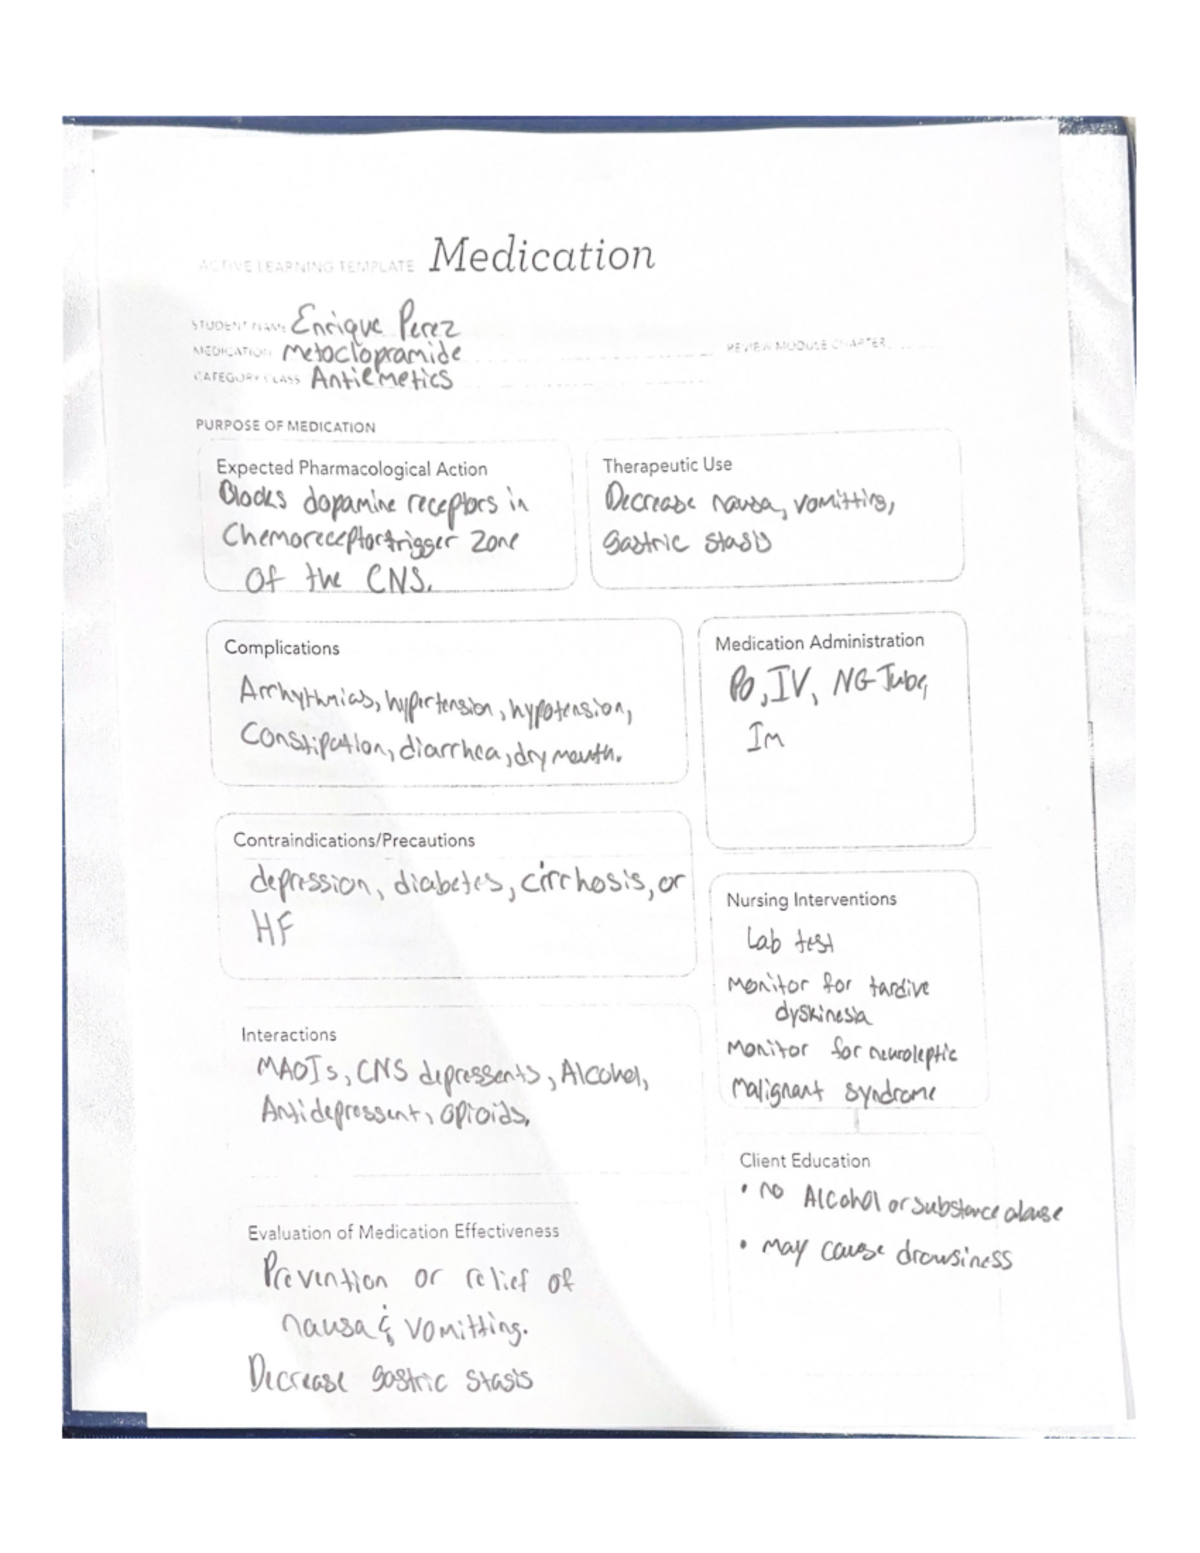 ACTIVE LEARNING TEMPLATE Medication
STUDENT NAME Enrique Perez
MEDICATION Metoclopramide
REVIEW MODULE CHAPTER
CATEGORY CLASS Antiemetics
PURPOSE OF MEDICATION
Expected Pharmacological Action
Blocks dopamine receptors in
Chemoreceptor trigger zone
of the CNS.
Therapeutic Use
Decrease nausa, vomitting,
gastric stasis
Complications
Arrhythmias, hypertension, hypotension,
Constipation, diarrhea, dry mouth.
Medication Administration
Po, IV, NG Tube,
Im
Contraindications/Precautions
depression, diabetes, cirrhosis, or
HF
Nursing Interventions
Lab test
Monitor for tardive
dyskinesia
Monitor for neuroleptic
Malignant syndrome
Interactions
MAOIs, CNS depressents, Alcohol,
Antidepressent, opioids.
Client Education
• no Alcohol or substance abuse
• may cause drowsiness
Evaluation of Medication Effectiveness
Prevention or relief of
nausa & vomitting.
Decrease gastric stasis